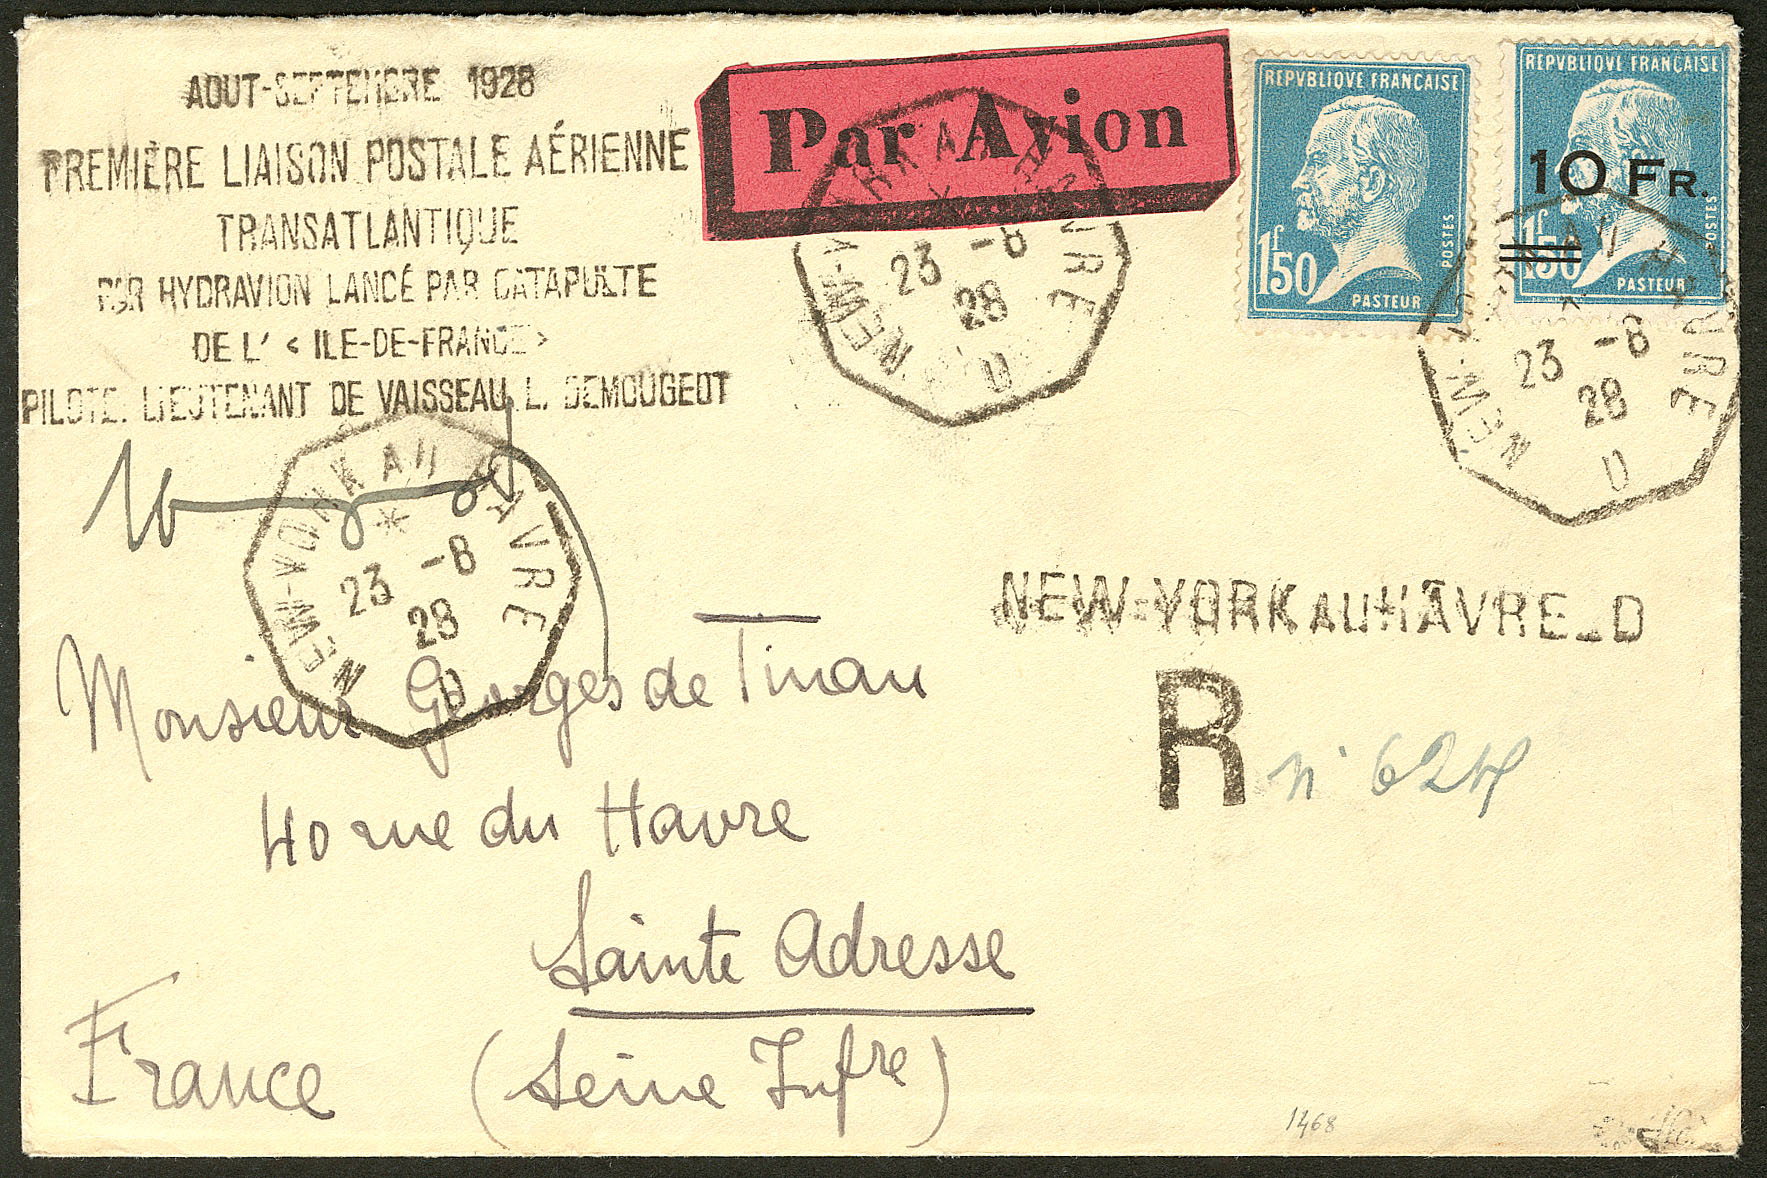 AOUT-SEPTEMBRE 1928
PREMIÈRE LIAISON POSTALE AÉRIENNE
TRANSATLANTIQUE
PAR HYDRAVION LANCÉ PAR CATAPULTE
DE L' < ILE-DE-FRANCE >
PILOTE: LIEUTENANT DE VAISSEAU L. DEMOUGEOT
Par Avion
REPVBLIQVE FRANÇAISE
1f50
POSTES
PASTEUR
REPVBLIQVE FRANÇAISE
10 FR.
1f50
POSTES
PASTEUR
NEW-YORK AU HAVRE
23 -8
28
D
NEW-YORK AU HAVRE
23 -8
28
D
NEW-YORK AU HAVRE
23 -8
28
D
NEW-YORK AU HAVRE_D
R n° 624
Monsieur Georges de Tinan
40 rue du Havre
Sainte Adresse
France (Seine Infre)
1468